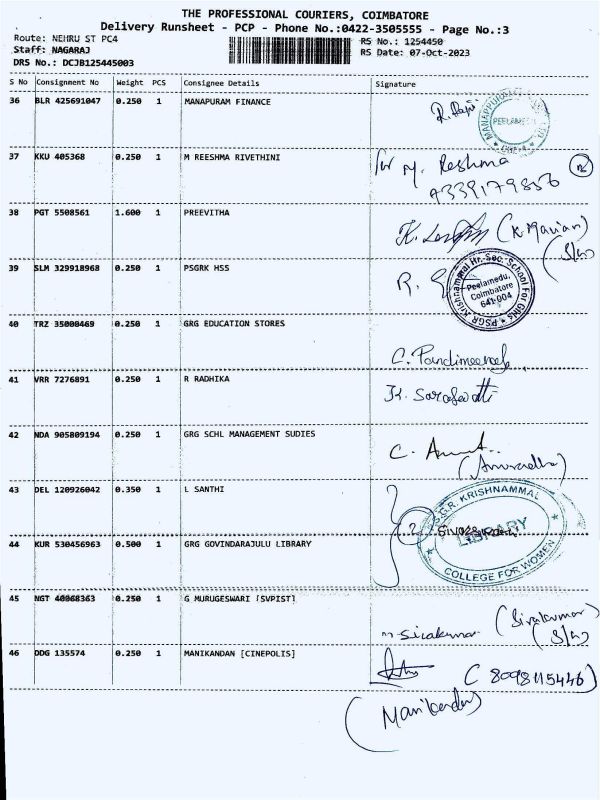 THE PROFESSIONAL COURIERS, COIMBATORE
Delivery Runsheet - PCP - Phone No.:0422-3505555 - Page No.:3
Route: NEHRU ST PC4 RS No.: 1254450
Staff: NAGARAJ RS Date: 07-Oct-2023
DRS No.: DCJB125445003
S No Consignment No Weight PCS Consignee Details Signature
36 BLR 425691047 0.250 1 MANAPURAM FINANCE
PEELAMEDU
37 KKU 405368 0.250 1 M REESHMA RIVETHINI
M. Reshma
9339179856
38 PGT 5508561 1.600 1 PREEVITHA
(K. Mavian)
(S/w)
39 SLM 329918968 0.250 1 PSGRK HSS
PSGR Krishnammal Hr. Sec. School For Girls
Peelamedu,
Coimbatore
641 004
40 TRZ 35000469 0.250 1 GRG EDUCATION STORES
41 VRR 7276891 0.250 1 R RADHIKA
42 NDA 905809194 0.250 1 GRG SCHL MANAGEMENT SUDIES
(Anuradha)
43 DEL 120926042 0.350 1 L SANTHI
G.R. KRISHNAMMAL
LIBRARY
COLLEGE FOR WOMEN
44 KUR 530456963 0.500 1 GRG GOVINDARAJULU LIBRARY
45 NGT 40068363 0.250 1 G MURUGESWARI [SVPIST]
Sivakumar (Sivakumar)
(S/w)
46 DDG 135574 0.250 1 MANIKANDAN [CINEPOLIS]
(8098115446)
(Manikandan)